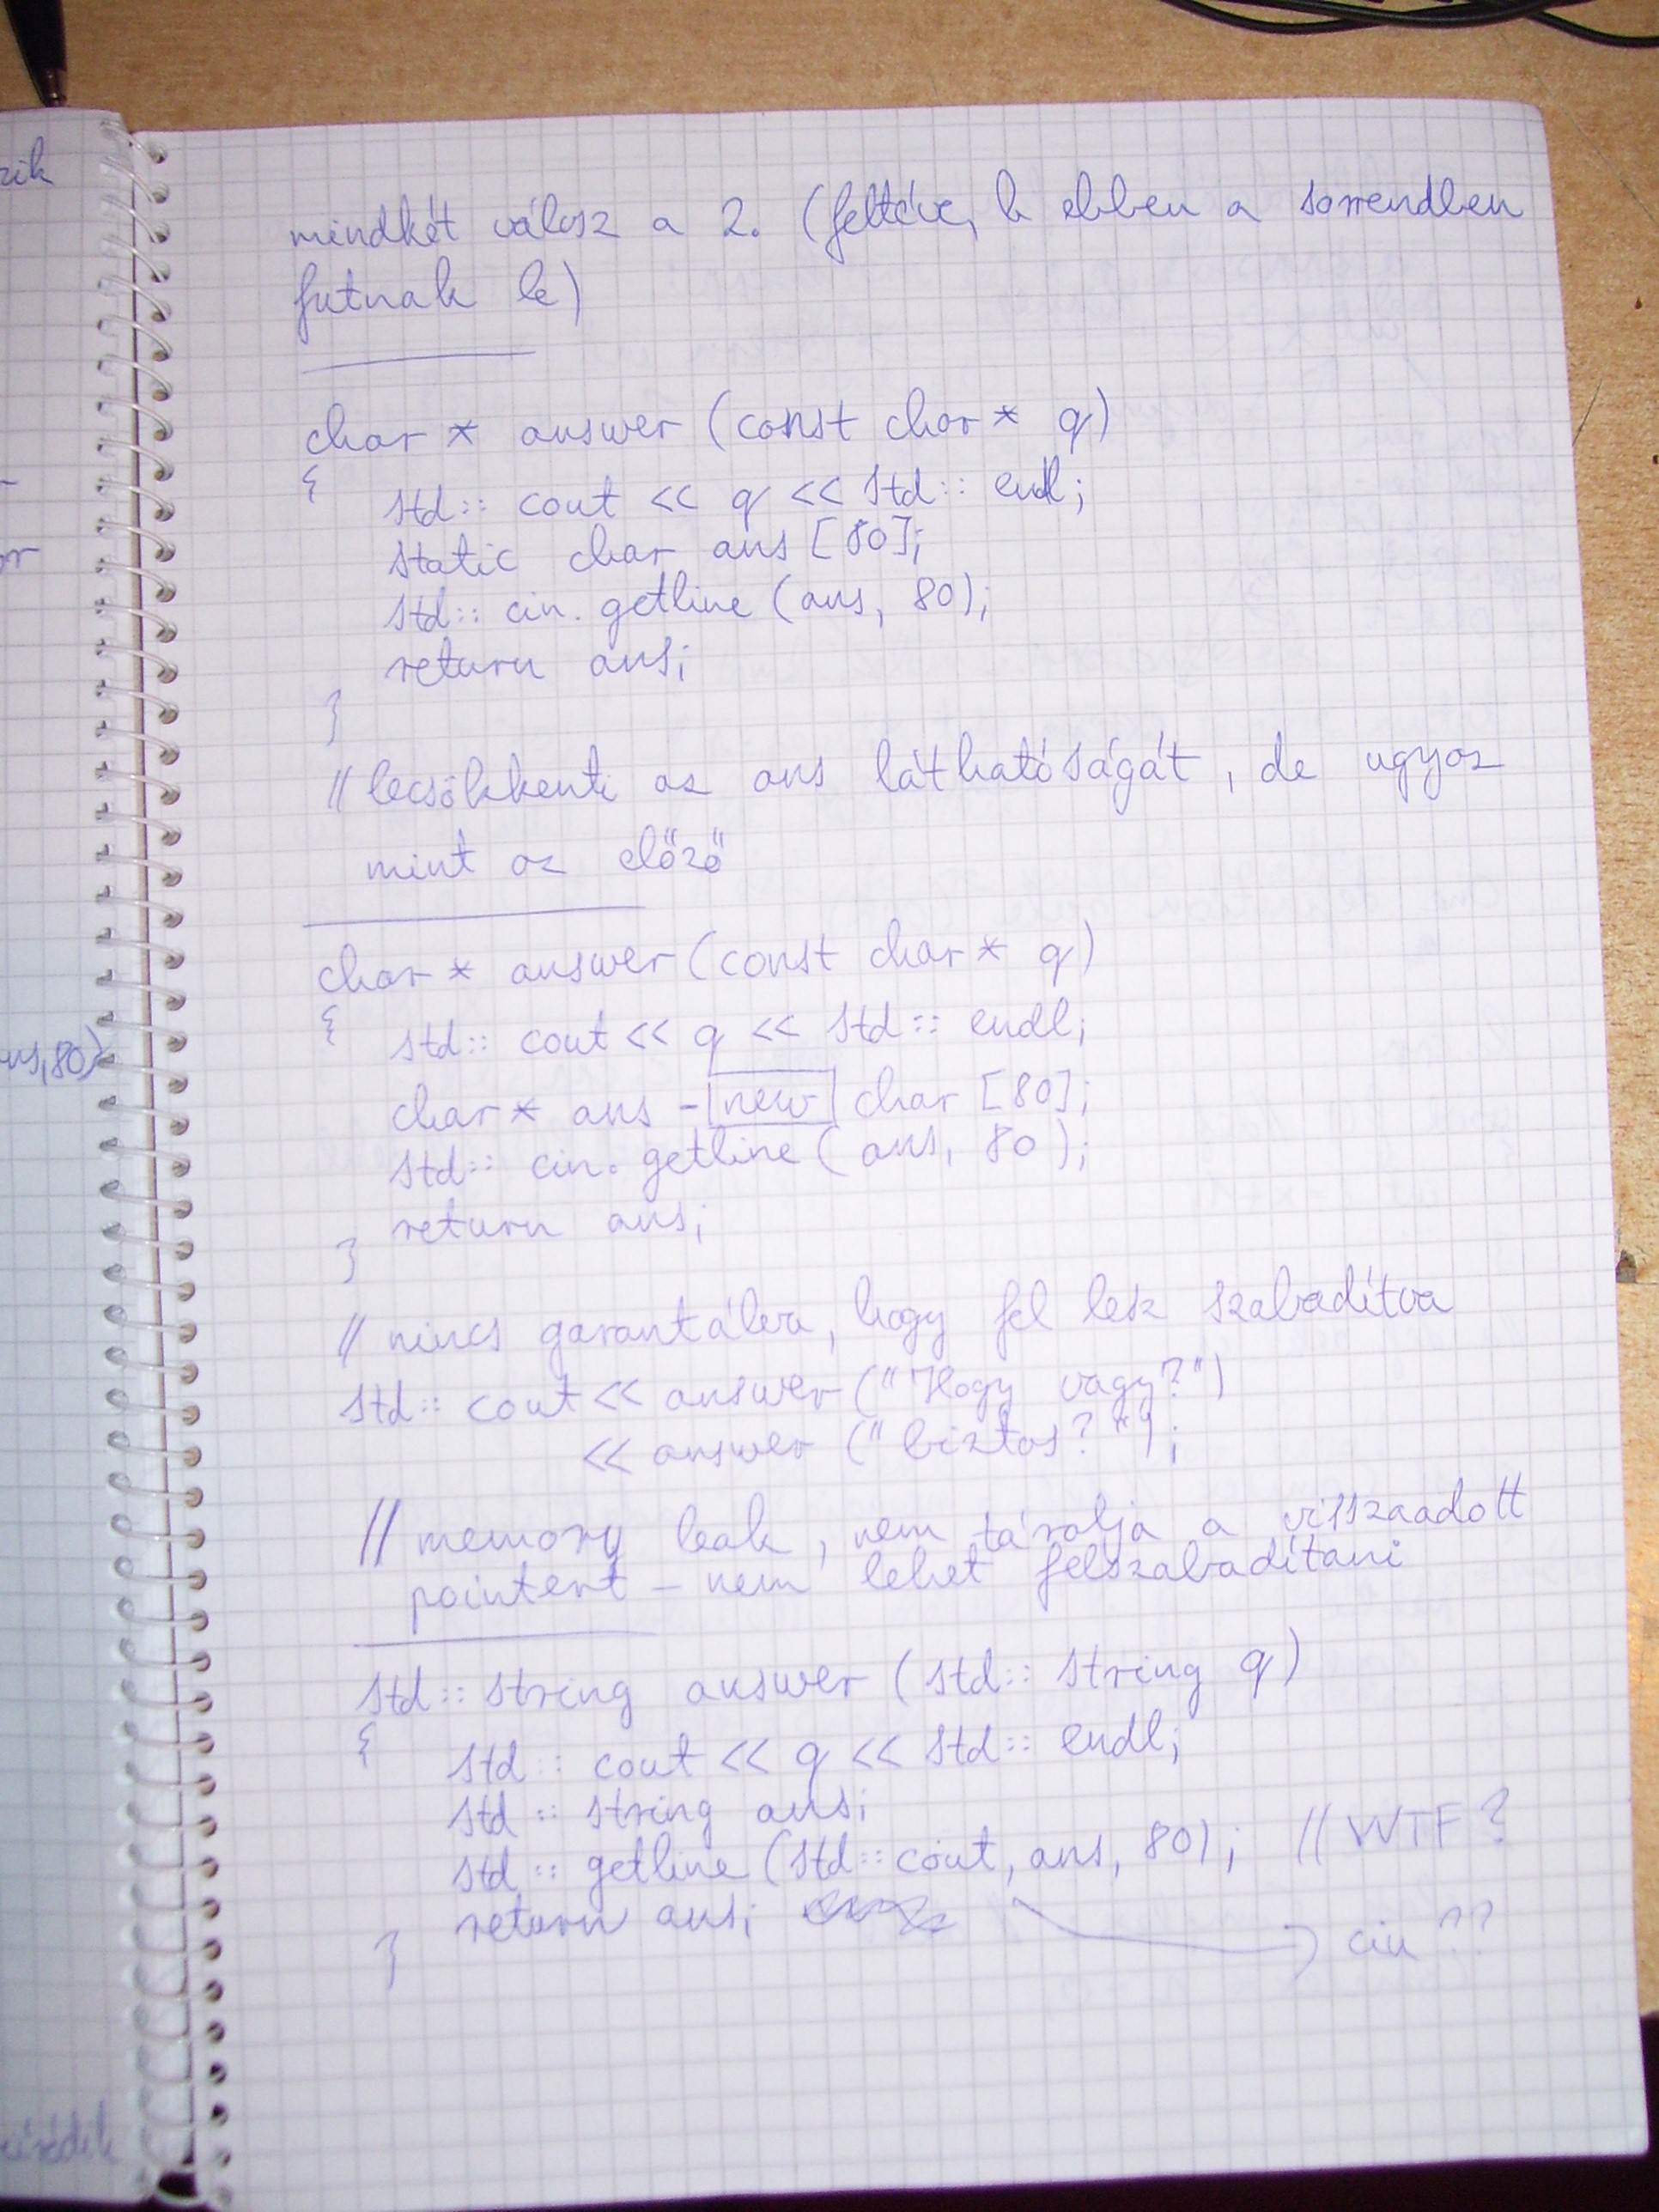 zik
or
ns,80)
mindkét válasz a 2. (feltéve, h ebben a sorrendben
futnak le)
char * answer (const char * q)
{ std:: cout << q << std:: endl;
static char ans [80];
std:: cin. getline (ans, 80);
return ans;
}
// lecsökkenti az ans láthatóságát, de ugyaz
mint az előző
char * answer (const char * q)
{ std:: cout << q << std:: endl;
char * ans = new char [80];
std:: cin. getline (ans, 80);
return ans;
}
// nincs garantálva, hogy fel lesz szabadítva
std:: cout << answer ("Hogy vagy?")
<< answer ("biztos?");
// memory leak, nem tárolja a visszaadott
pointert - nem lehet felszabadítani
std:: string answer (std:: string q)
{ std:: cout << q << std:: endl;
std:: string ans;
std:: getline (std:: cout, ans, 80); // WTF?
return ans;
cin ??
}